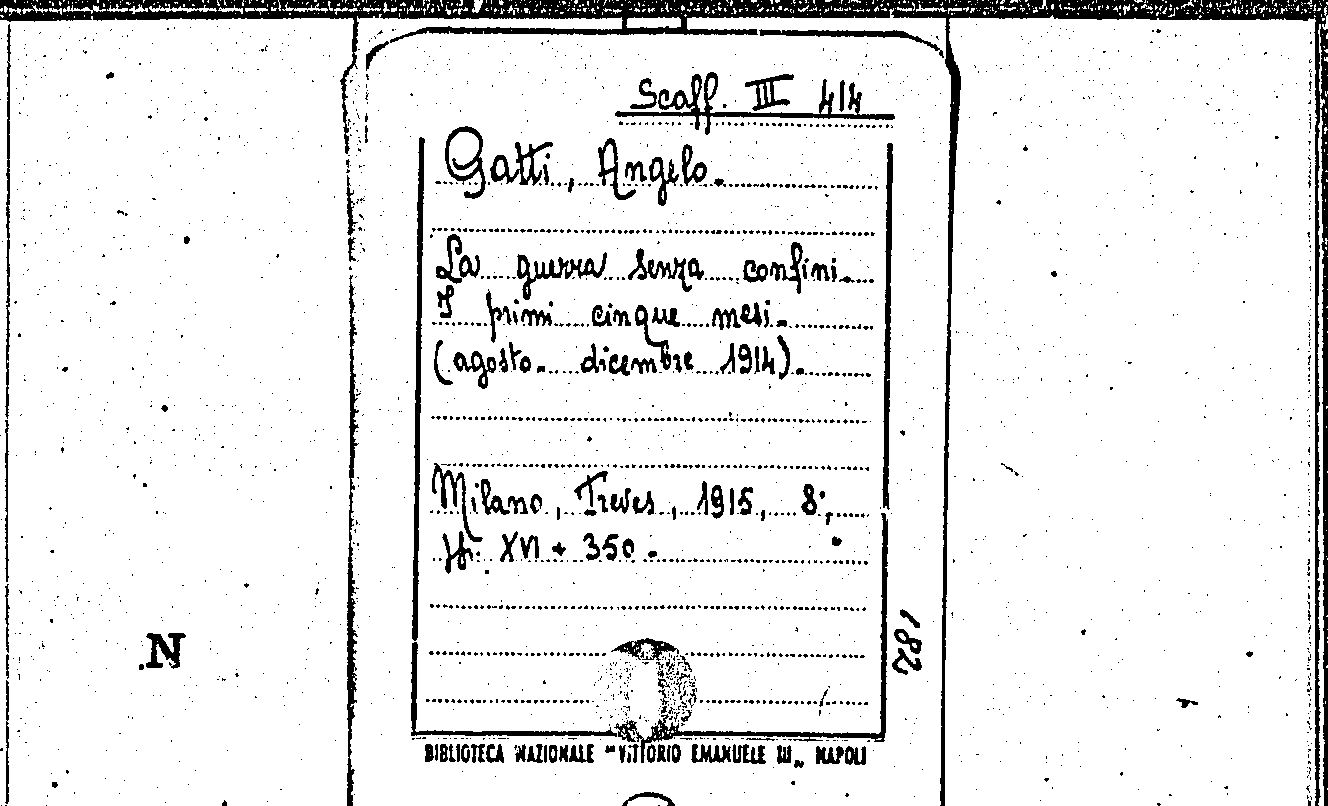 Scaff. III 414
Gatti, Angelo.
La guerra senza confini.
I primi cinque mesi.
(agosto-dicembre 1914).
Milano, Treves, 1915, 8°,
pp. XVI + 350.
182
N
BIBLIOTECA NAZIONALE "VITTORIO EMANUELE III„ NAPOLI